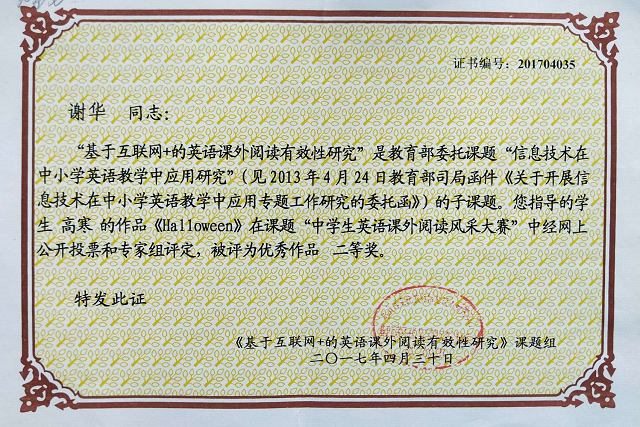 证书编号：201704035
谢华 同志：
“基于互联网+的英语课外阅读有效性研究”是教育部委托课题“信息技术在
中小学英语教学中应用研究”（见2013年4月24日教育部司局函件《关于开展信
息技术在中小学英语教学中应用专题工作研究的委托函》）的子课题。您指导的学
生 高寒 的作品《Halloween》在课题“中学生英语课外阅读风采大赛”中经网上
公开投票和专家组评定，被评为优秀作品 二等奖。
特发此证
《基于互联网+的英语课外阅读有效性研究》课题组
二〇一七年四月三十日